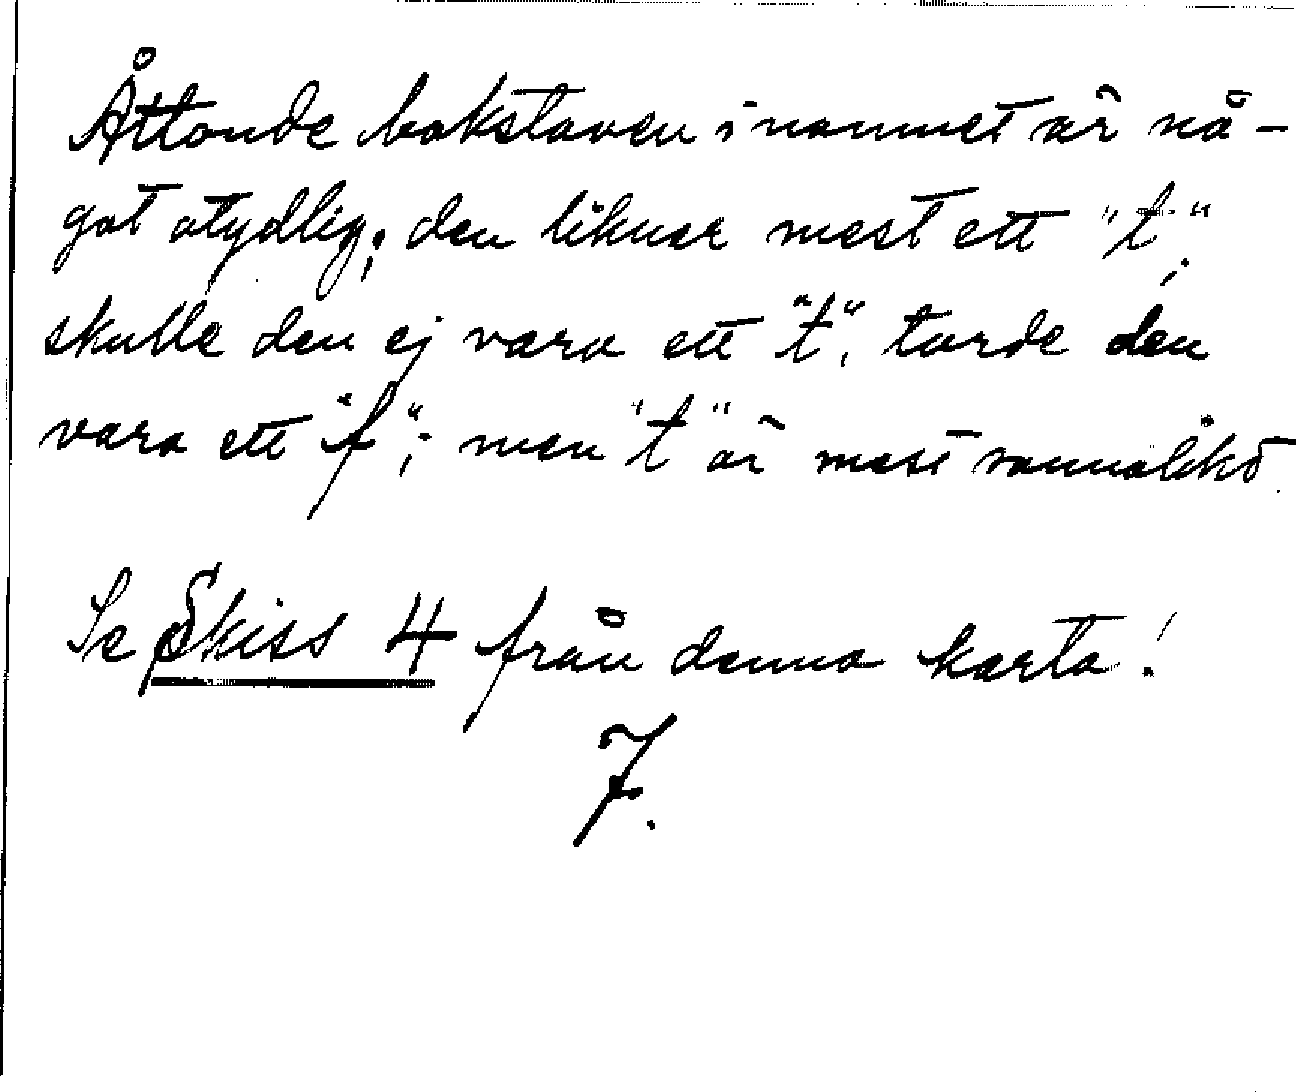 Åttonde bokstaven i namnet är nå-
got otydlig; den liknar mest ett "t";
skulle den ej vara ett "t", torde den
vara ett "f"; men "t" är mest sannolikt.
Se Skiss 4 från denna karta!
7.